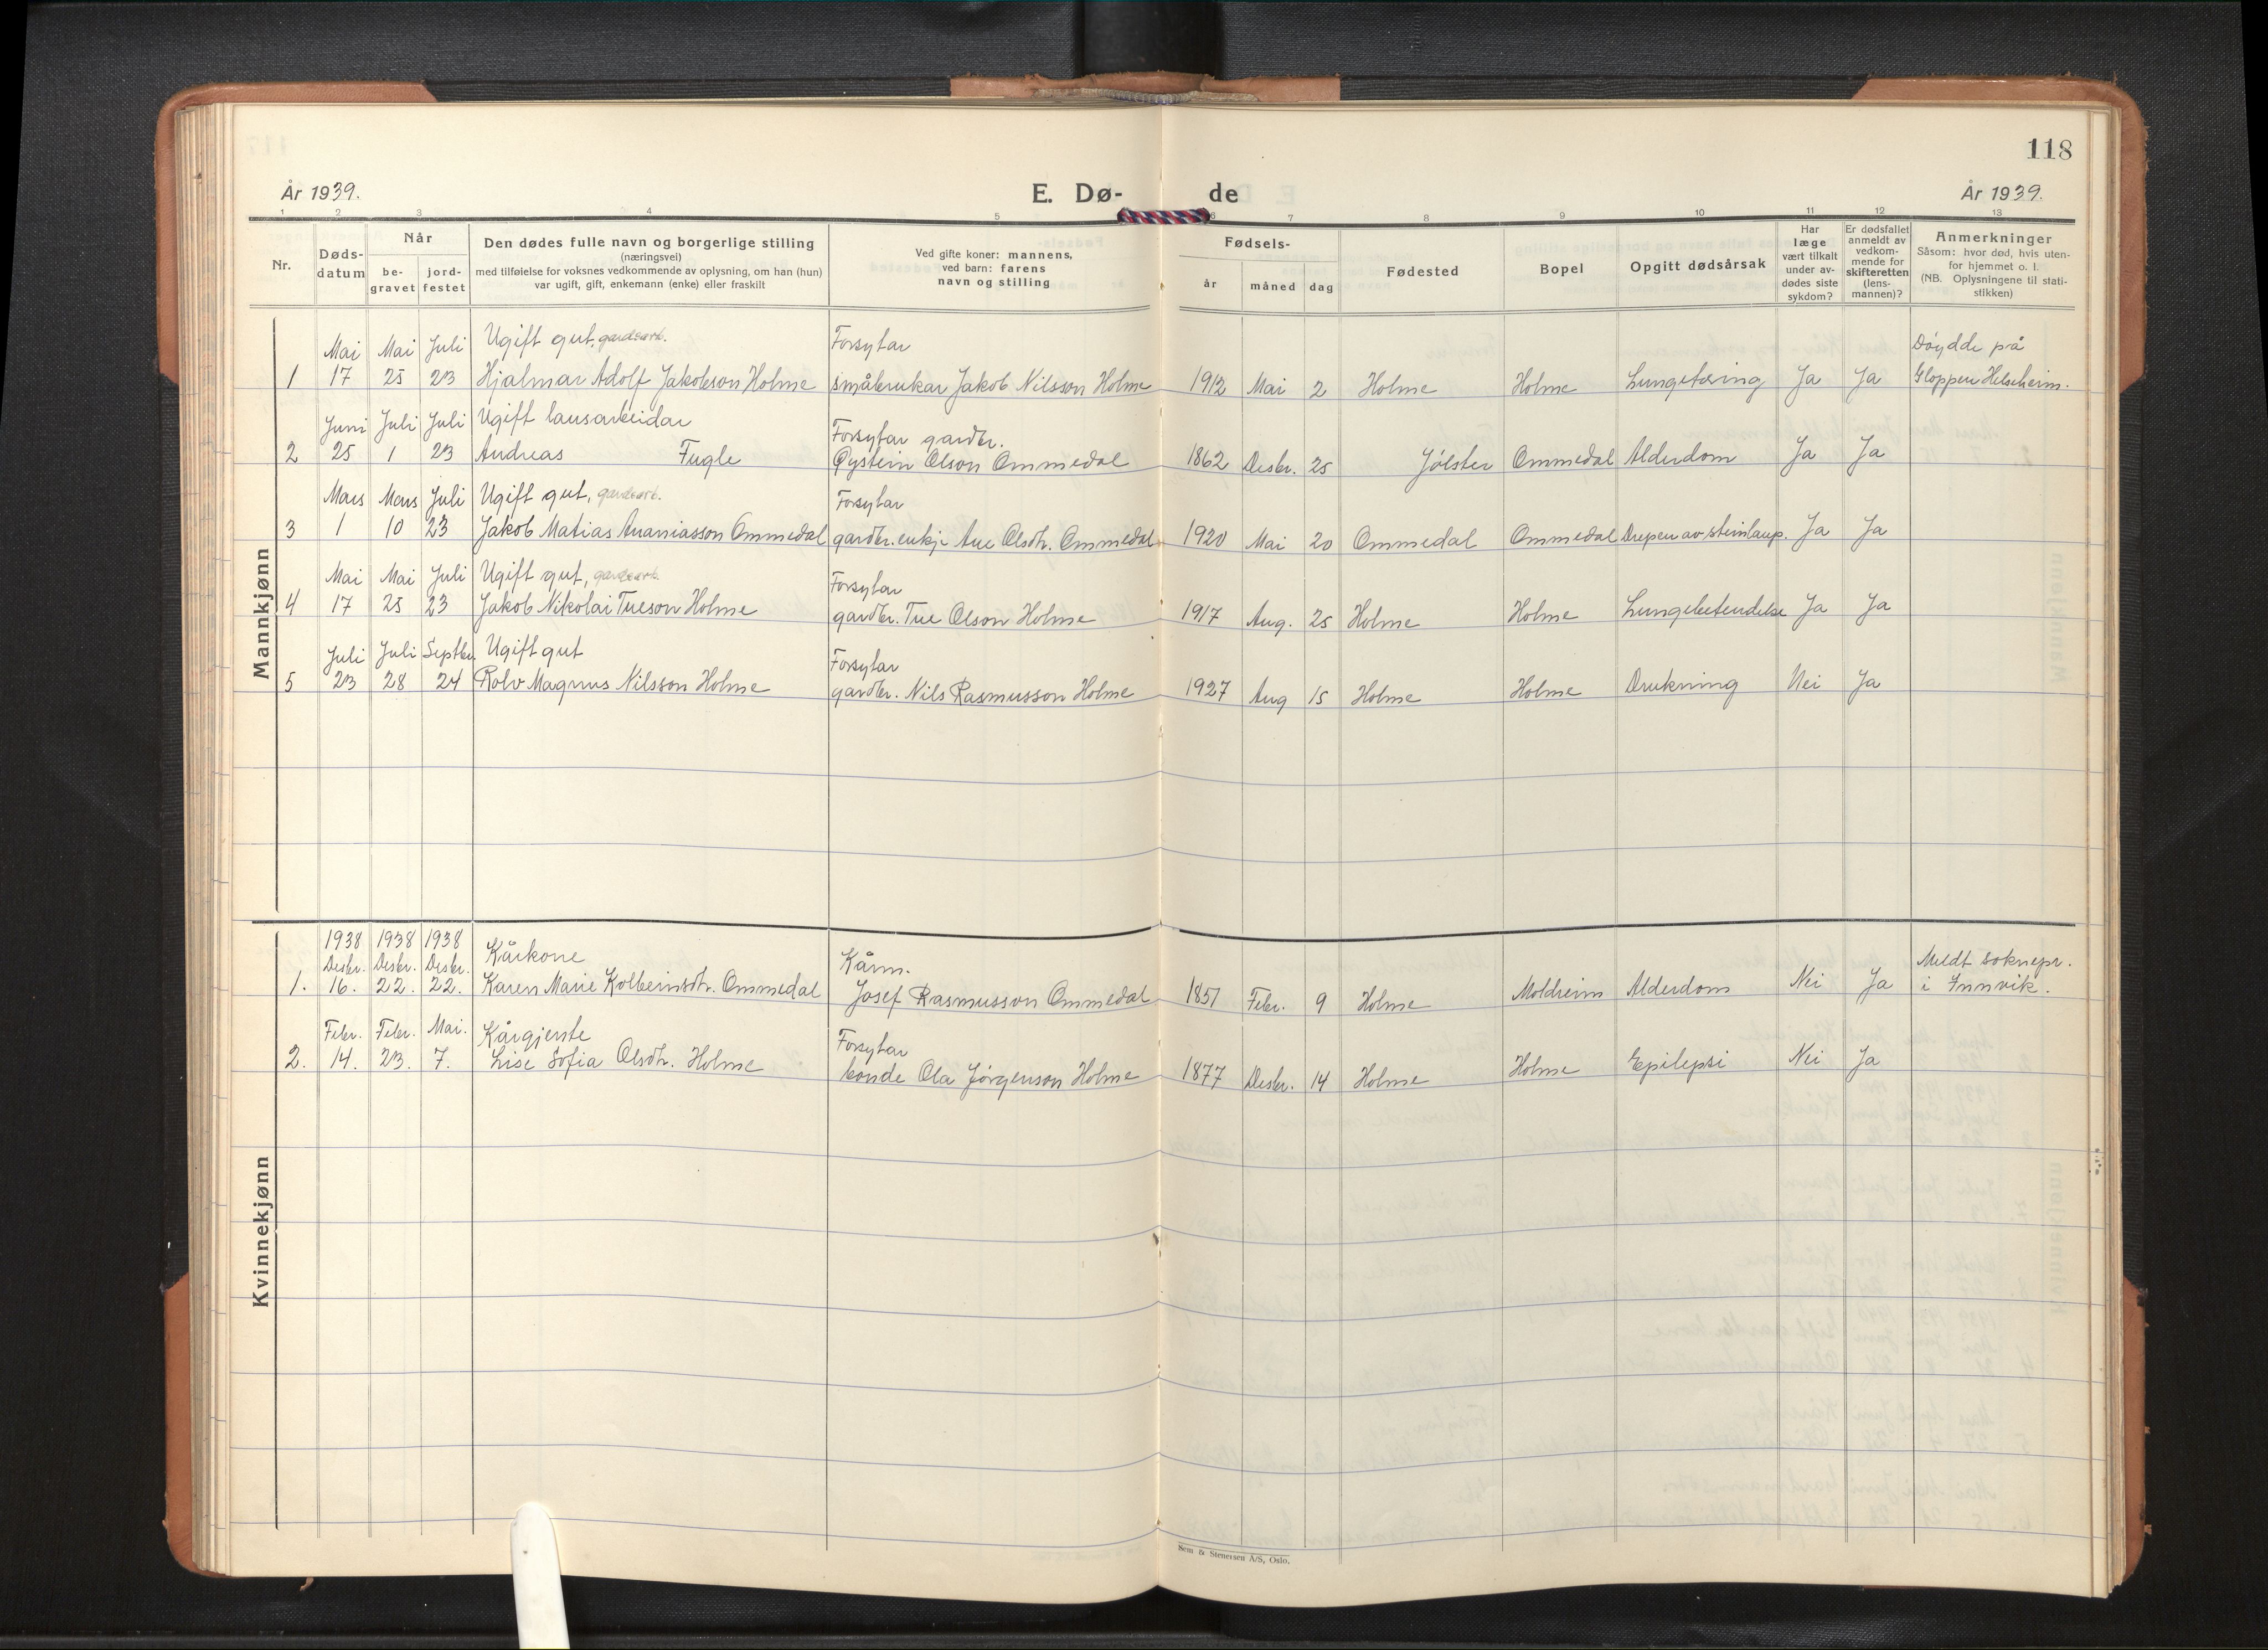 118
År 1939.
E. Dø-
de
År 1939.
1 2 3 4 5 6 7 8 9 10 11 12 13
Nr.
Døds-
datum
Når
be-
gravet
jord-
festet
Den dødes fulle navn og borgerlige stilling
(næringsvei)
med tilføielse for voksnes vedkommende av oplysning, om han (hun)
var ugift, gift, enkemann (enke) eller fraskilt
Ved gifte koner: mannens,
ved barn: farens
navn og stilling
Fødsels-
år måned dag
Fødested
Bopel
Opgitt dødsårsak
Har
læge
vært tilkalt
under av-
dødes siste
sykdom?
Er dødsfallet
anmeldt av
vedkom-
mende for
skifteretten
(lens-
mannen)?
Anmerkninger
Såsom: hvor død, hvis uten-
for hjemmet o. l.
(NB. Oplysningene til stati-
stikken)
Mannkjønn
Mai Mai Juli Ugift gut, gardsarb. Forsytar Døydde på
1 17 25 23 Hjalmar Adolf Jakobson Holme småbrukar Jakob Nilsson Holme 1912 Mai 2 Holme Holme Lungetæring Ja Ja Gloppen Helseheim.
Juni Juli Juli Ugift lausarbeidar Forsytar gardbr.
2 25 1 23 Andreas Fugle Øystein Olson Ommedal 1862 Desbr. 25 Jølster Ommedal Alderdom Ja Ja
Mars Mars Juli Ugift gut, gardsarb. Forsytar
3 1 10 23 Jakob Matias Ananiasson Ommedal gardbr.enkje Ane Olsdtr. Ommedal 1920 Mai 20 Ommedal Ommedal Drepen av steinlaup. Ja Ja
Mai Mai Juli Ugift gut, gardsarb. Forsytar
4 17 25 23 Jakob Nikolai Tueson Holme gardbr. Tue Olson Holme 1917 Aug. 25 Holme Holme Lungebetendelse Ja Ja
Juli Juli Septbr. Ugift gut Forsytar
5 23 28 24 Rolv Magnus Nilsson Holme gardbr. Nils Rasmusson Holme 1927 Aug 15 Holme Holme Drukning Nei Ja
Kvinnekjønn
1938 1938 1938
Desbr. Desbr. Desbr. Kårkone Kårm. Meldt soknepr.
1. 16. 22. 22. Karen Marie Kolbeinsdtr. Ommedal Josef Rasmusson Ommedal 1851 Febr. 9 Holme Moldreim Alderdom Nei Ja i Innvik.
Febr. Febr. Mai. Kårgjente Forsytar
2. 14. 23. 7. Lise Sofia Olsdtr. Holme bonde Ola Jörgenson Holme 1877 Desbr. 14 Holme Holme Epilepsi Nei Ja
Sem & Stenersen A/S, Oslo.